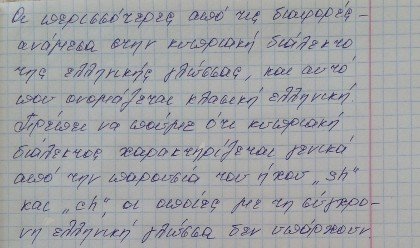 Οι περισσότερες από τις διαφορές -
ανάμεσα στην κυπριακή διάλεκτο
της ελληνικής γλώσσας, και αυτό
που ονομάζεται κλασική ελληνική.
Πρέπει να πούμε ότι κυπριακή
διάλεκτος χαρακτηρίζεται γενικά
από την παρουσία του ήχου „sh"
και „ch" οι οποίες με τη σύγχρο-
νη ελληνική γλώσσα δεν υπάρχουν.